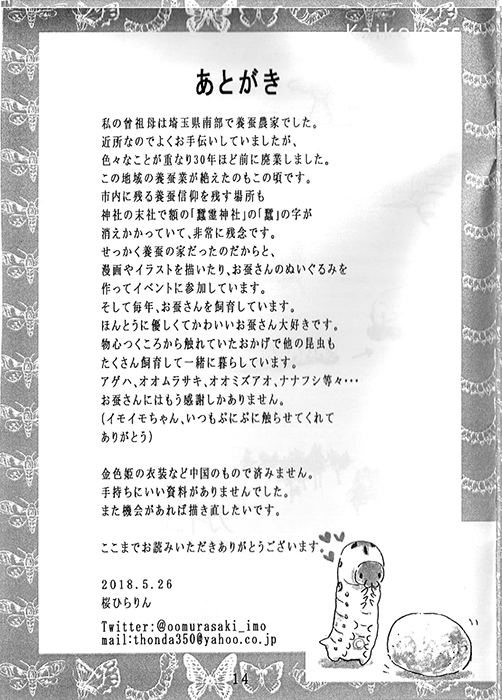 あとがき
私の曾祖母は埼玉県南部で養蚕農家でした。
近所なのでよくお手伝いしていましたが、
色々なことが重なり30年ほど前に廃業しました。
この地域の養蚕業が絶えたのもこの頃です。
市内に残る養蚕信仰を残す場所も
神社の末社で額の「蠶霊神社」の「蠶」の字が
消えかかっていて、非常に残念です。
せっかく養蚕の家だったのだからと、
漫画やイラストを描いたり、お蚕さんのぬいぐるみを
作ってイベントに参加しています。
そして毎年、お蚕さんを飼育しています。
ほんとうに優しくてかわいいお蚕さん大好きです。
物心つくころから触れていたおかげで他の昆虫も
たくさん飼育して一緒に暮らしています。
アゲハ、オオムラサキ、オオミズアオ、ナナフシ等々…
お蚕さんにはもう感謝しかありません。
(イモイモちゃん、いつもぷにぷに触らせてくれて
ありがとう)
金色姫の衣装など中国のもので済みません。
手持ちにいい資料がありませんでした。
また機会があれば描き直したいです。
ここまでお読みいただきありがとうございます。
2018.5.26
桜ひらりん
Twitter:@oomurasaki_imo
mail:thonda350@yahoo.co.jp
14